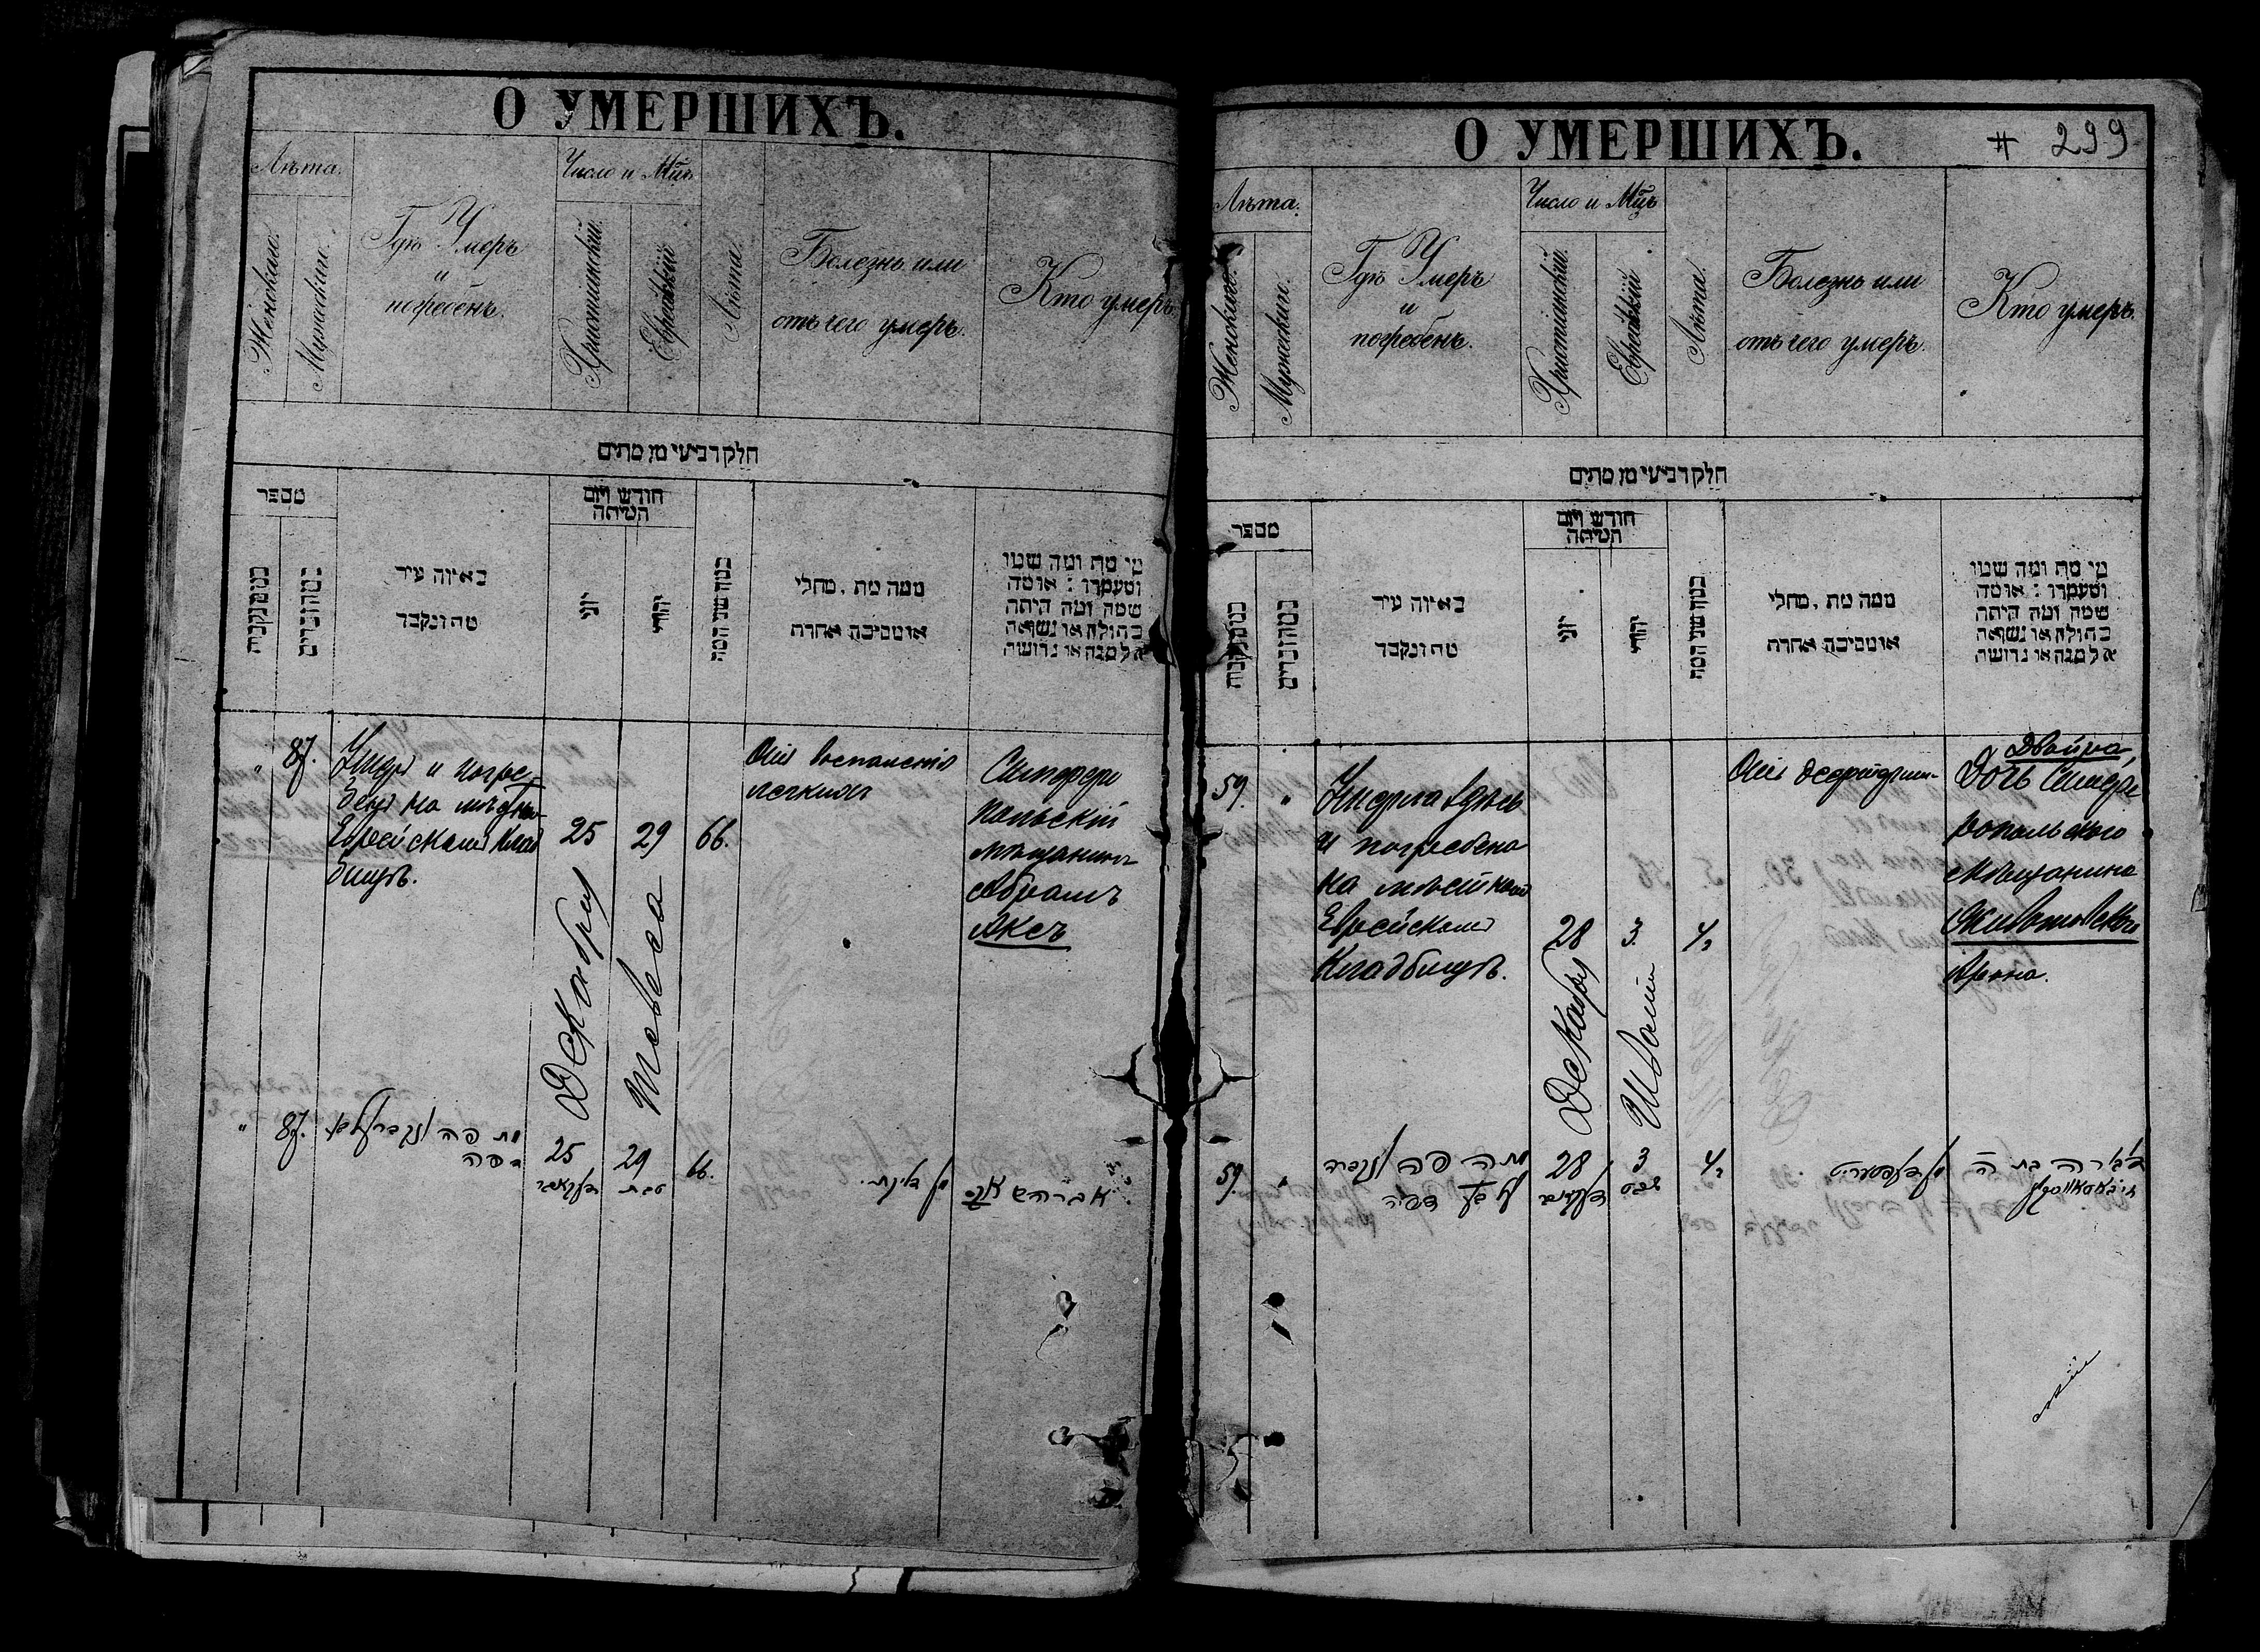 О УМЕРШИХЪ.
Лѣта.
Женскаго.
Мужскаго.
Гдѣ Умеръ
и
погребенъ.
Число и Мцъ
Христіанскій
Еврейскій
Лѣта.
Болезнь или
отъ чего умеръ.
Кто умеръ.
חלק רביעי מן מתים
מספר
באיזה עיר
מת ונקבר
חודש ויום
המיתה
יוני
יהודי
ממה מת, מחלי
או מסיבה אחרת
מי מת ומה שמו
ומעמדו : או מה
שמה ומה היתה
בתולה או נשואה
אלמנה או גרושה
" 87.
Умеръ и погре-
бенъ на мѣстн
Еврейскомъ клад
бищѣ.
25
Декабря
29
Тевеса
66.
Отъ воспаленія
легкихъ
Симфери
польскій
мѣщанинъ
Абрамъ
Аксъ
" 87.
מת פה
25
29
טבת
66.
אברהם
О УМЕРШИХЪ.
# 299
Лѣта.
Женскаго.
Мужскаго.
Гдѣ Умеръ
и
погребенъ.
Число и Мцъ
Христіанскій
Еврейскій
Лѣта.
Болезнь или
отъ чего умеръ.
Кто умеръ.
חלק רביעי מן מתים
מספר
באיזה עיר
מת ונקבר
חודש ויום
המיתה
יוני
יהודי
ממה מת, מחלי
או מסיבה אחרת
מי מת ומה שמו
ומעמדו : או מה
שמה ומה היתה
בתולה או נשואה
אלמנה או גרושה
59. "
Умерла здѣсь
и погребена
на мѣстномъ
Еврейскомъ
Кладбищѣ.
28
Декабря
3
Шватъ
4
Отъ
Двойра,
Дочь Симфе
ропольского
мѣщанина
Арона.
59. "
מתה פה
28
3
שבט
4